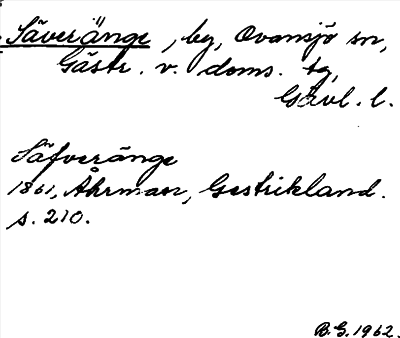 Säveränge, by, Ovansjö sn,
Gästr. v. doms. tg,
Gävl. l.
Säfveränge
1861, Åhrman, Gestrikland.
s. 210.
B.G. 1962.